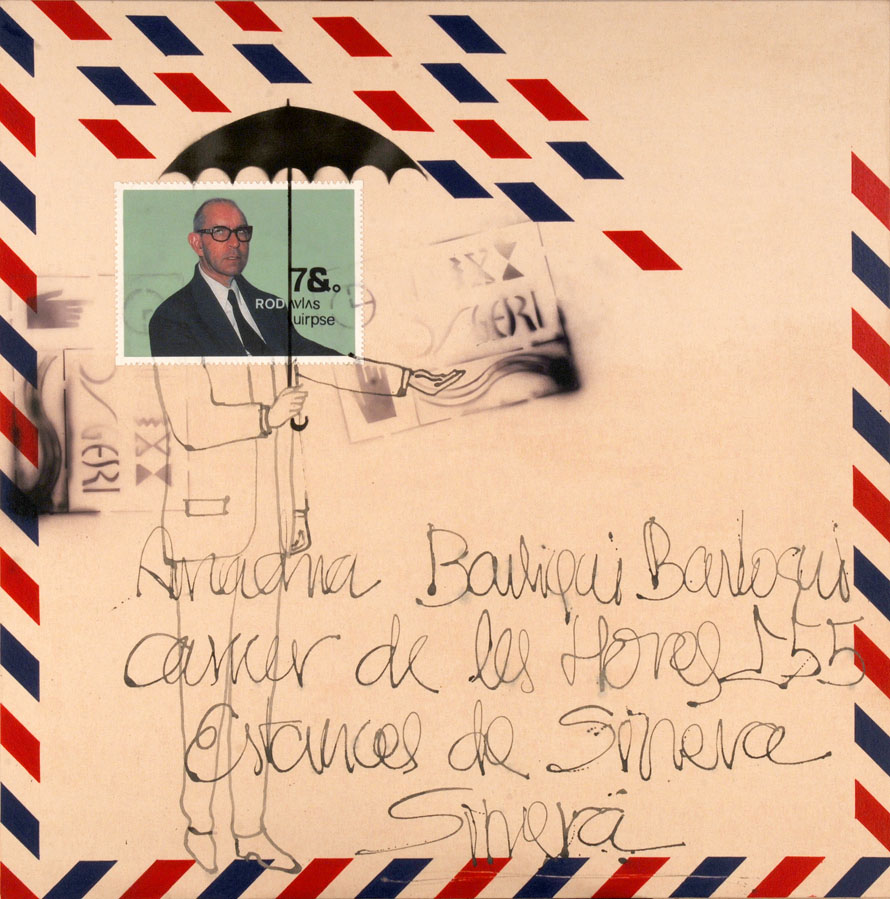 7&.
RODAVLAS
uirpse
Ariadna Barliqui Barloqui
carrer de les Hores 155
Estances de Sinera
Sinera